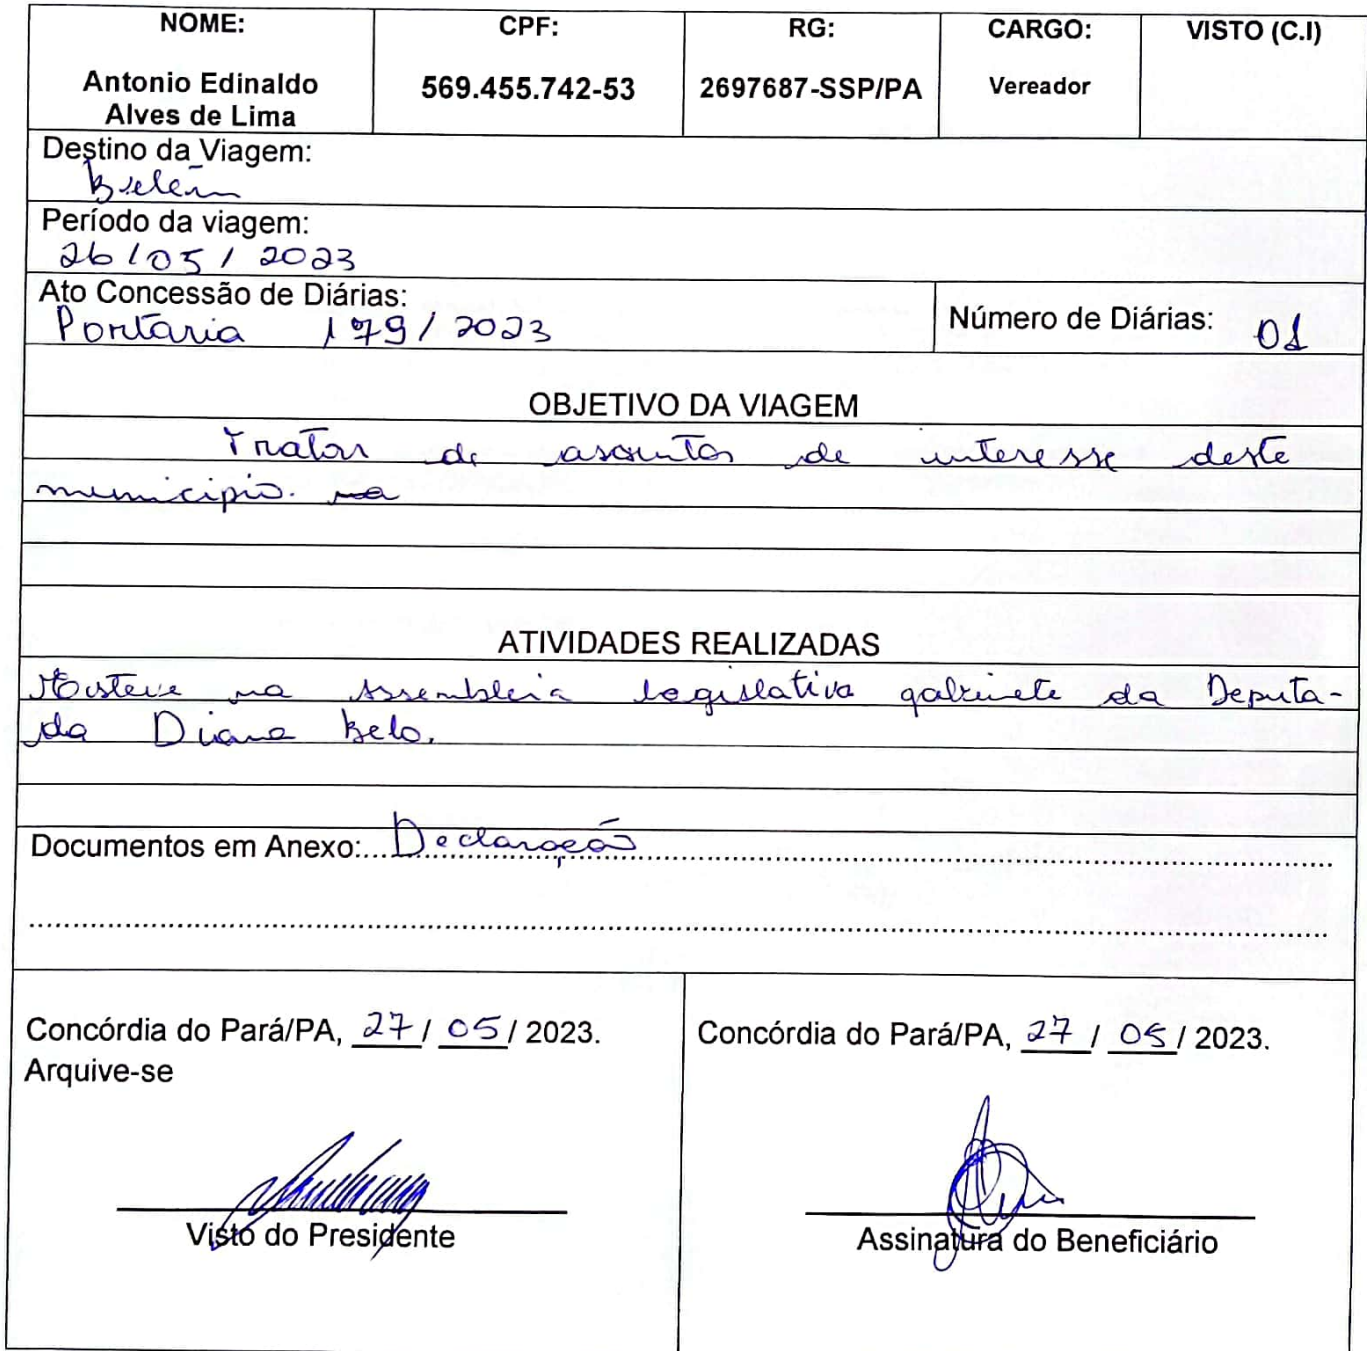 NOME: CPF: RG: CARGO: VISTO (C.I)
Antonio Edinaldo 569.455.742-53 2697687-SSP/PA Vereador
Alves de Lima
Destino da Viagem:
Belém
Período da viagem:
26/05/2023
Ato Concessão de Diárias:
Portaria 179/2023 Número de Diárias: 01
OBJETIVO DA VIAGEM
Tratar de assuntos de interesse deste
município. na
ATIVIDADES REALIZADAS
Esteve na Assembleia Legislativa gabinete da Deputa-
da Diana Belo.
Documentos em Anexo: Declaração
Concórdia do Pará/PA, 27/05/2023. Concórdia do Pará/PA, 27/05/2023.
Arquive-se
Visto do Presidente Assinatura do Beneficiário